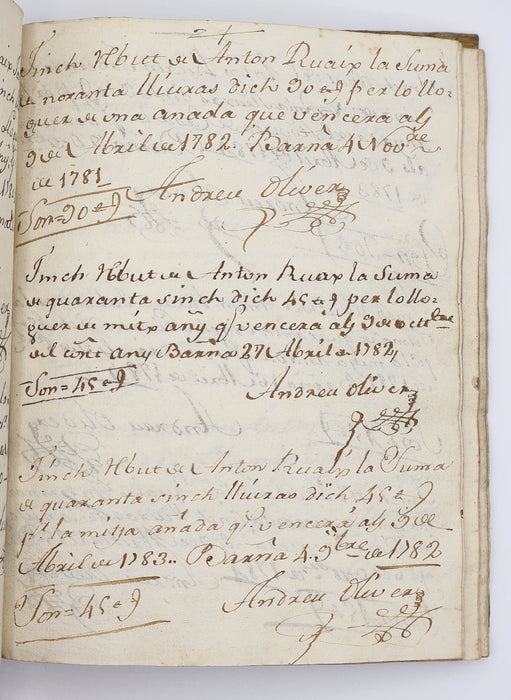 Tinch Rebut de Anton Ruaix la Suma
de noranta lliuras dich 90 ll per lo llo-
guer de una añada que vencera als
9 de Abril de 1782. Barna 4 Novre
de 1781
Son = 90 ll Andreu Oliver
Tinch Rebut de Anton Ruaix la Suma
de quaranta sinch dich 45 ll per lo llo-
guer de mitx añy qe vencerá als 9 de octubre
del cñt any Barna 27 Abril de 1782
Son = 45 ll Andreu Oliver
Tinch Rebut de Anton Ruaix la Suma
de quaranta sinch lliuras dich 45 ll
pr. la mitja añada qe vencerá als 9 de
Abril de 1783.. Barna 4. 9bre de 1782
Son = 45 ll Andreu Oliver